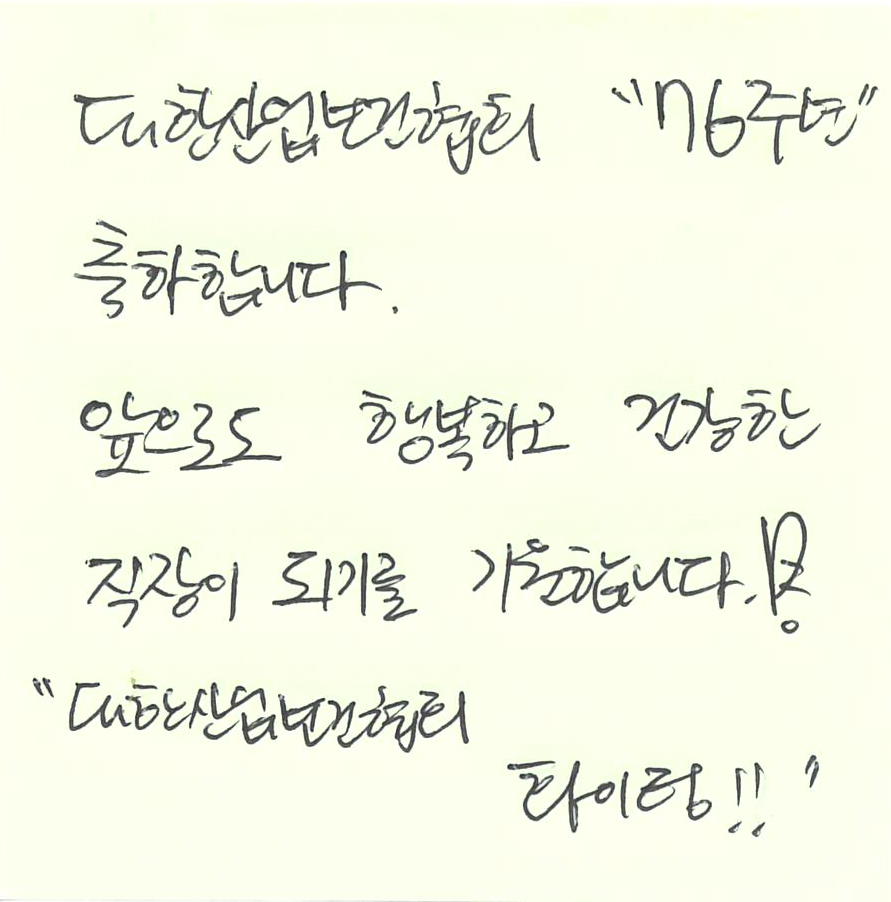 대한산업보건협회 "76주년"
축하합니다.
앞으로도 행복하고 건강한
직장이 되기를 기원합니다.!
"대한산업보건협회
화이팅!!"